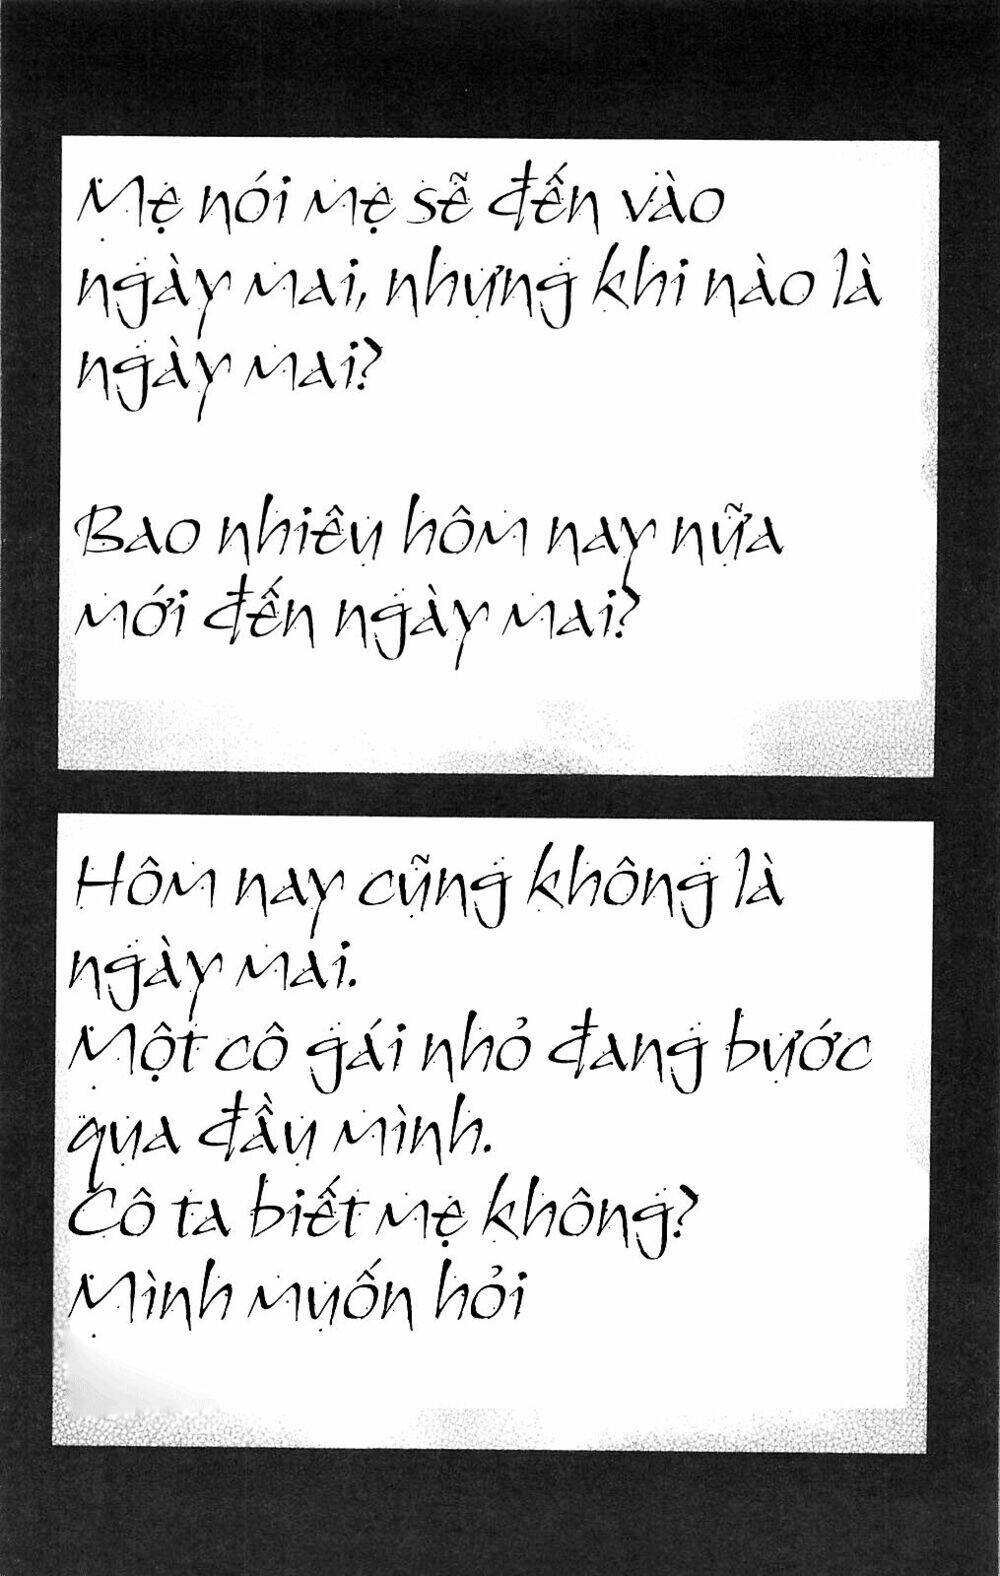 Mẹ nói mẹ sẽ đến vào
ngày mai, nhưng khi nào là
ngày mai?
Bao nhiêu hôm nay nữa
mới đến ngày mai?
Hôm nay cũng không là
ngày mai.
Một cô gái nhỏ đang bước
qua đầu mình.
Cô ta biết mẹ không?
Mình muốn hỏi